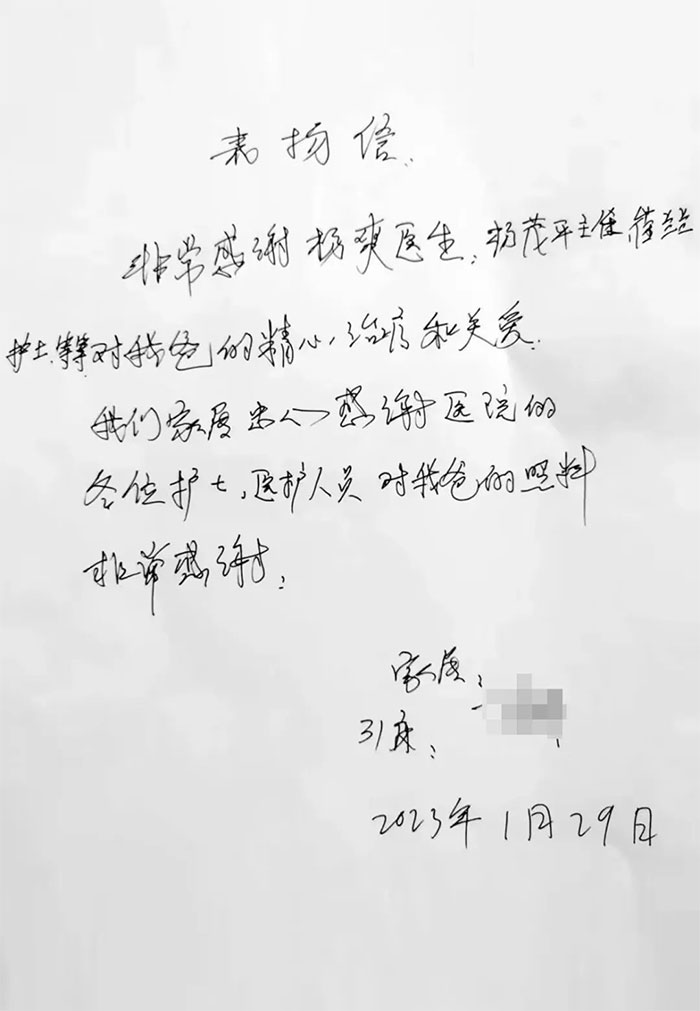 表扬信.
非常感谢杨爽医生,杨茂平主任,
护士,等等对我爸的精心治疗和关爱.
我们家属 感谢医院的
各位护士,医护人员对我爸的照料
非常感谢:
家属:
31床:
2023年1月29日